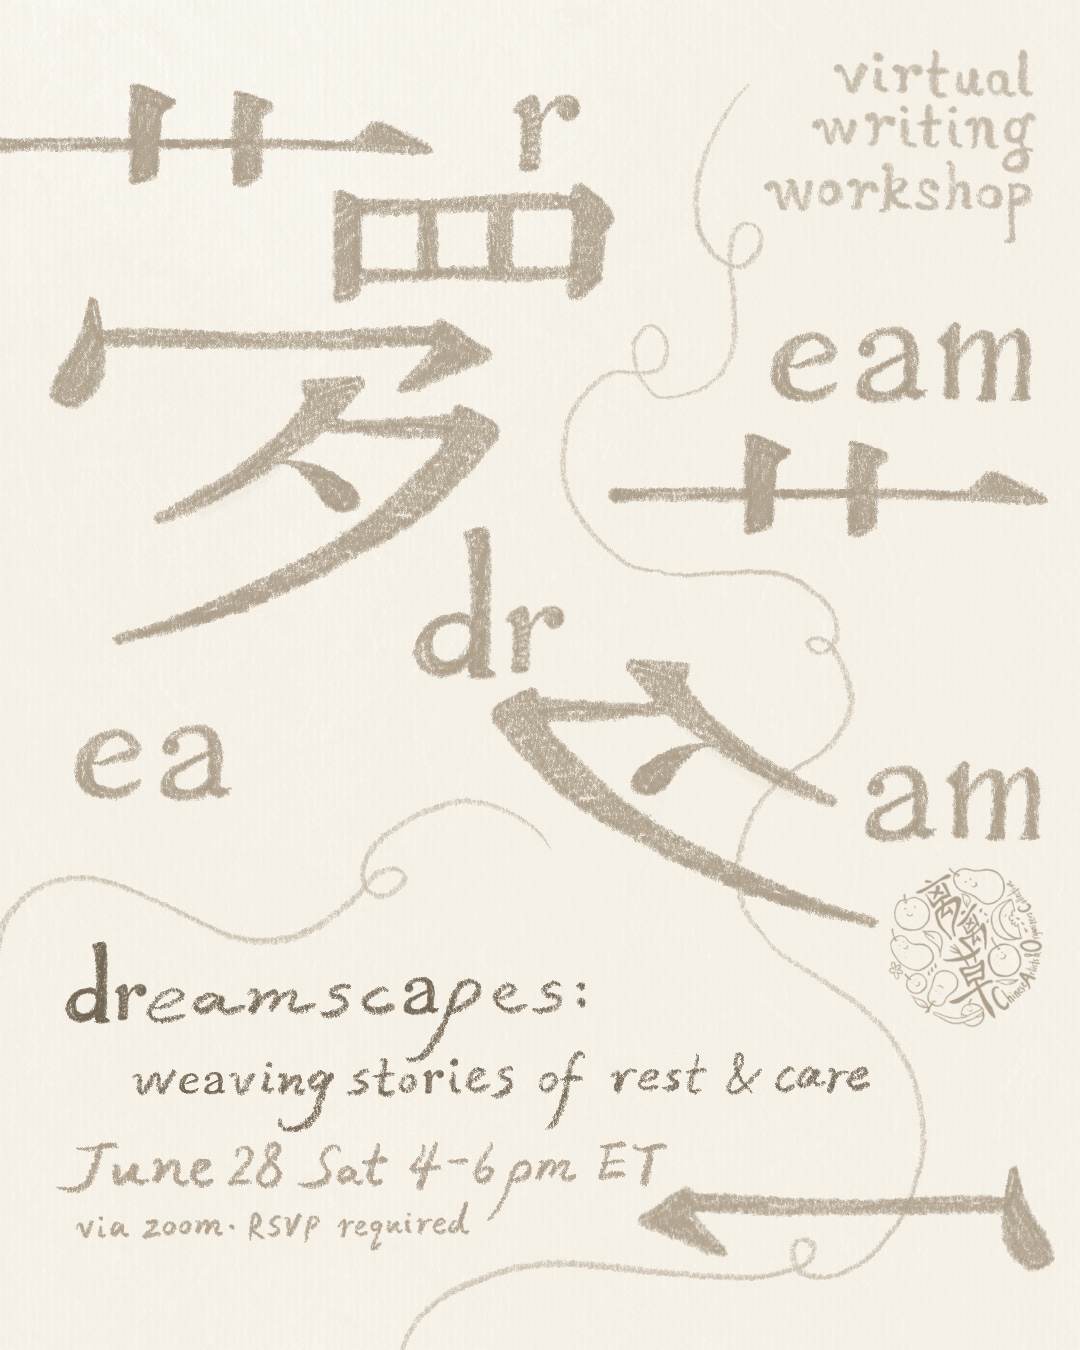 virtual
writing
workshop
r
夢
eam
艹
dr
ea
夕
am
dreamscapes:
weaving stories of rest & care
June 28 Sat 4-6pm ET
via zoom. RSVP required
冖